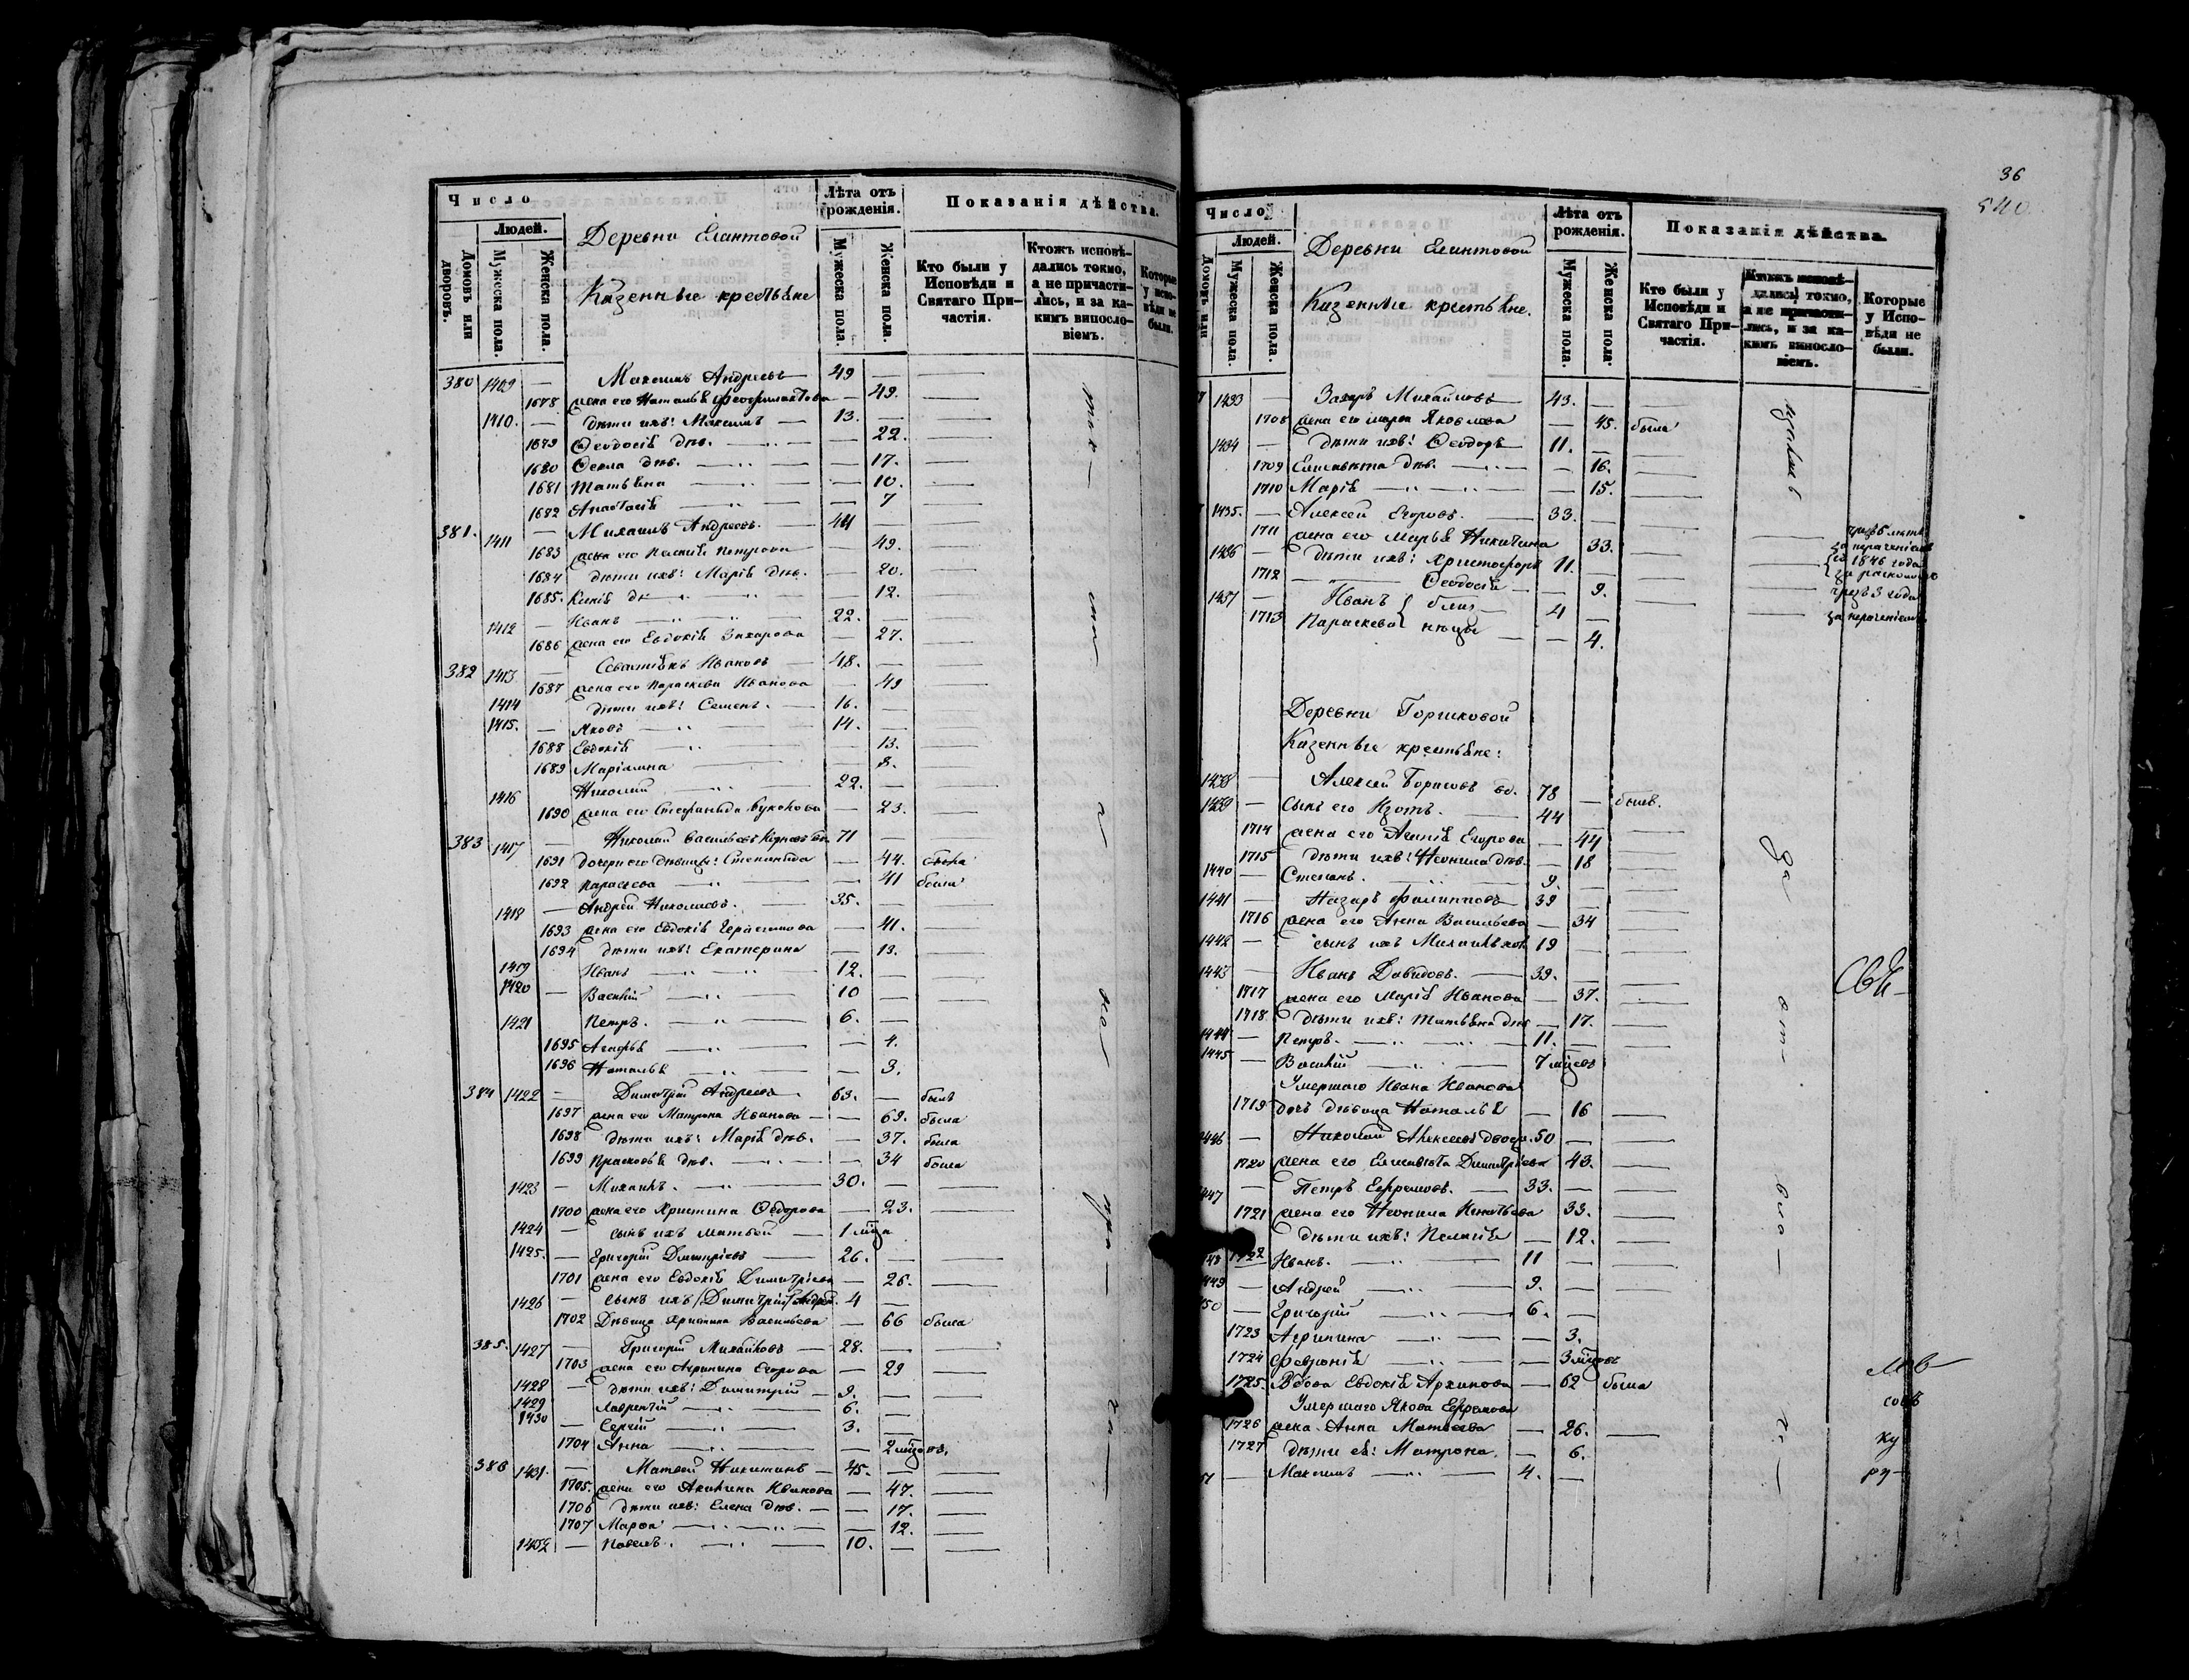 Число
Людей.
Домовъ или дворовъ.
Мужеска пола.
Женска пола.
Деревни Елантовой
Казенные крестьяне
Лѣта отъ рожденія.
Мужеска пола.
Женска пола.
Показанія дѣйства.
Кто были у Исповѣди и Святаго Причастія.
Ктожъ исповѣдались токмо, а не причастились, и за какимъ винословіемъ.
Которые у исповѣди не были.
380 1409 — Максимъ Андреевъ 49 —
1678 жена его Наталья Феофилактова — 49.
1410. — дѣти ихъ: Максимъ — 13.
1679 Ѳеодосія дѣв. — 22.
1680 Ѳекла дѣв. — 17.
1681 Татьяна — 10.
1682 Анастасія — 7
381. 1411 — Михаилъ Андреевъ. 44 —
1683 жена его Петрова — 49.
1684 дѣти ихъ: Марія дѣв. — 20.
1685. Ксенія — 12.
1412 — Иванъ 22. —
1686 жена его Евдокія Захарова — 27.
382 1413 — Севастіянъ Ивановъ 48. —
1687 жена его Параскева Иванова — 49
1414 дѣти ихъ: Семенъ. 16. —
1415. — Яковъ 14. —
1688 Евдокія — 13.
1689 Маріамна — 8.
1416 Николай 22. —
1690 жена его Стефанида — 23.
383 1417 — Николай Васильевъ 71 —
1691 дочери его дѣвицы: Степанида — 44. была
1692 Параскева — 41 была
1418 — Андрей Николаевъ. 35. —
1693 жена его Евдокія Герасимова — 41.
1694 дѣти ихъ: Екатерина — 13.
1419 Иванъ 12. —
1420 — Василій 10 —
1421 Петръ. 6. —
1695 Агафья — 4.
1696 Наталья — 3.
384 1422 — Димитрій Андреевъ 63. — былъ
1697 жена его Матрона Иванова — 69. была
1698 дѣти ихъ: Марія дѣв. — 37. была
1699 Прасковья дѣв. — 34 была
1423 — Михаилъ. 30. —
1700 жена его Христина Ѳедорова — 23.
1424 — сынъ ихъ Матвей — 1 мѣца
1425. — Григорій Димитріевъ 26. —
1701 жена его Евдокія Димитріева — 26.
1426 — сынъ ихъ Димитрій 4 —
1702 Дѣвица Христина Васильева — 66 была
385. 1427 — Григорій Михайловъ 28. —
1703 жена его Агрипина Егорова — 29
1428 — дѣти ихъ: Димитрій 9. —
1429 Лаврентій 6. —
1430 — Сергій 3. —
1704 Анна — 2 мѣцовъ.
386 1431. — Матвей Никитинъ 45. —
1705. жена его Акилина Иванова — 47.
1706 дѣти ихъ: Елена дѣв. — 17.
1707 Марѳа — 12.
1432 — Павелъ. 10. —
36
540
Число
Людей.
Домовъ или
Мужеска пола
Женска пола.
Деревни Елантовой
Казенные крестьяне.
Лѣта отъ рожденія.
Мужеска пола.
Женска пола.
Показанія дѣйства.
Кто были у Исповѣди и Святаго Причастія.
Ктожъ исповѣдались токмо, а не причастились, и за какимъ винословіемъ.
Которые у Исповѣди не были.
1433 — Захаръ Михайловъ 43. —
1708 жена его Марѳа Яковлева — 45. была
1434 — дѣти ихъ: Ѳеодоръ 11. —
1709 Елисавета дѣв. — 16.
1710 Марія — 15.
1435. — Алексей Егоровъ. 33. —
1711 жена его Марья Никитина 33.
1436 — дѣти ихъ: Христофоръ 11.
1712 Ѳеодосія — 9.
1437 — Иванъ } близ 4 —
1713 Параскева } нецы — 4.
за нераченіемъ
1846 года
за расколомъ
чрезъ 3 года
за нераченіемъ
Деревни Горшковой
Казенные крестьяне:
1438 — Алексей Борисовъ вд. 78 — былъ.
1439 — Сынъ его Изотъ. 44
1714 жена его Агапія Егорова — 44
1715 дѣти ихъ: Неонила дѣв. — 18
1440 — Степанъ. 9. —
1441 — Назаръ Филипповъ 39 —
1716 жена его Анна Васильева — 34
1442 — сынъ ихъ Михаилъ 19 —
1443 — Иванъ Давидовъ. 39. —
1717 жена его Марія Иванова — 37.
1718 дѣти ихъ: Татьяна дѣв — 17.
1444 — Петръ. 11. —
1445 — Василій 7 мѣцовъ
Умершаго Ивана Иванова
1719 дочь дѣвица Наталья — 16
1446 — Николай Алексеевъ 50 —
1720 жена его Елисавета Димитріева — 43.
1447 — Петръ Ефремовъ. 33. —
1721 жена его Неонила Игнатьева 33.
1722 дѣти ихъ: Пелагія — 12.
48 — Иванъ. 11 —
449 — Андрей 9. —
50 — Григорій 6. —
1723 Агрипина — 3.
1724 Февронія — 3 мѣцовъ
1725. Вдова Евдокія Архипова — 62 была
Умершаго Якова Ефремова
1726 жена Анна Матвеева — 26.
1727 дѣти ея: Матрона. — 6.
51 — Максимъ 4. —